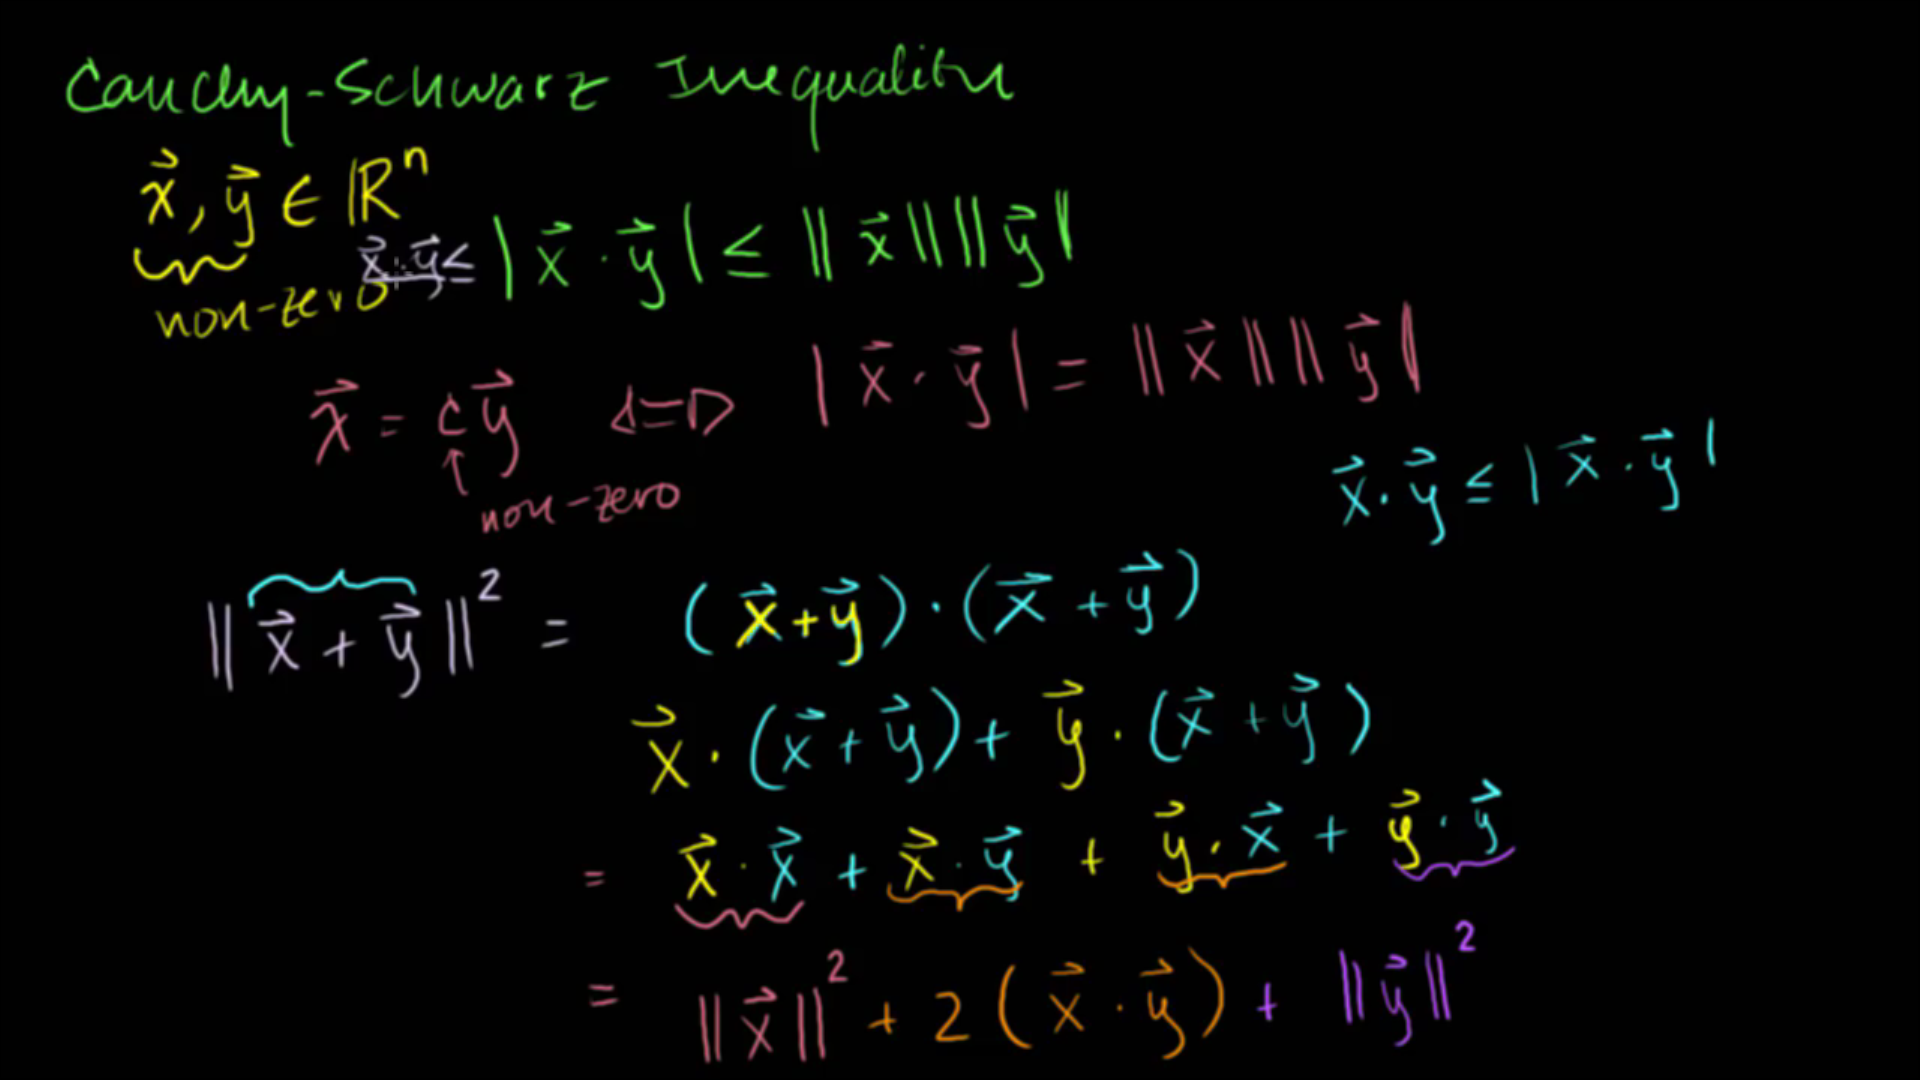 Cauchy-Schwarz Inequality
x⃗, y⃗ ∈ ℝⁿ
x⃗ · y⃗ ≤ |x⃗ · y⃗| ≤ ||x⃗|| ||y⃗||
non-zero
x⃗ = c y⃗ ⇔ |x⃗ · y⃗| = ||x⃗|| ||y⃗||
non-zero
x⃗ · y⃗ ≤ |x⃗ · y⃗|
||x⃗ + y⃗||² = (x⃗ + y⃗) · (x⃗ + y⃗)
x⃗ · (x⃗ + y⃗) + y⃗ · (x⃗ + y⃗)
= x⃗ · x⃗ + x⃗ · y⃗ + y⃗ · x⃗ + y⃗ · y⃗
= ||x⃗||² + 2(x⃗ · y⃗) + ||y⃗||²